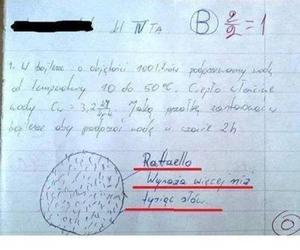 kl IV TA
B 2/2 = 1
1. W bojlerze o objętości 100 litrów podgrzewamy wodę
od temperatury 10 do 50°C. Ciepło właściwe
wody Cw = 3,2 Jaką grzałkę zastosować w
bojlerze aby podgrzać wodę w czasie 2h
Rafaello
Wyraża więcej niż
tysiąc słów
0